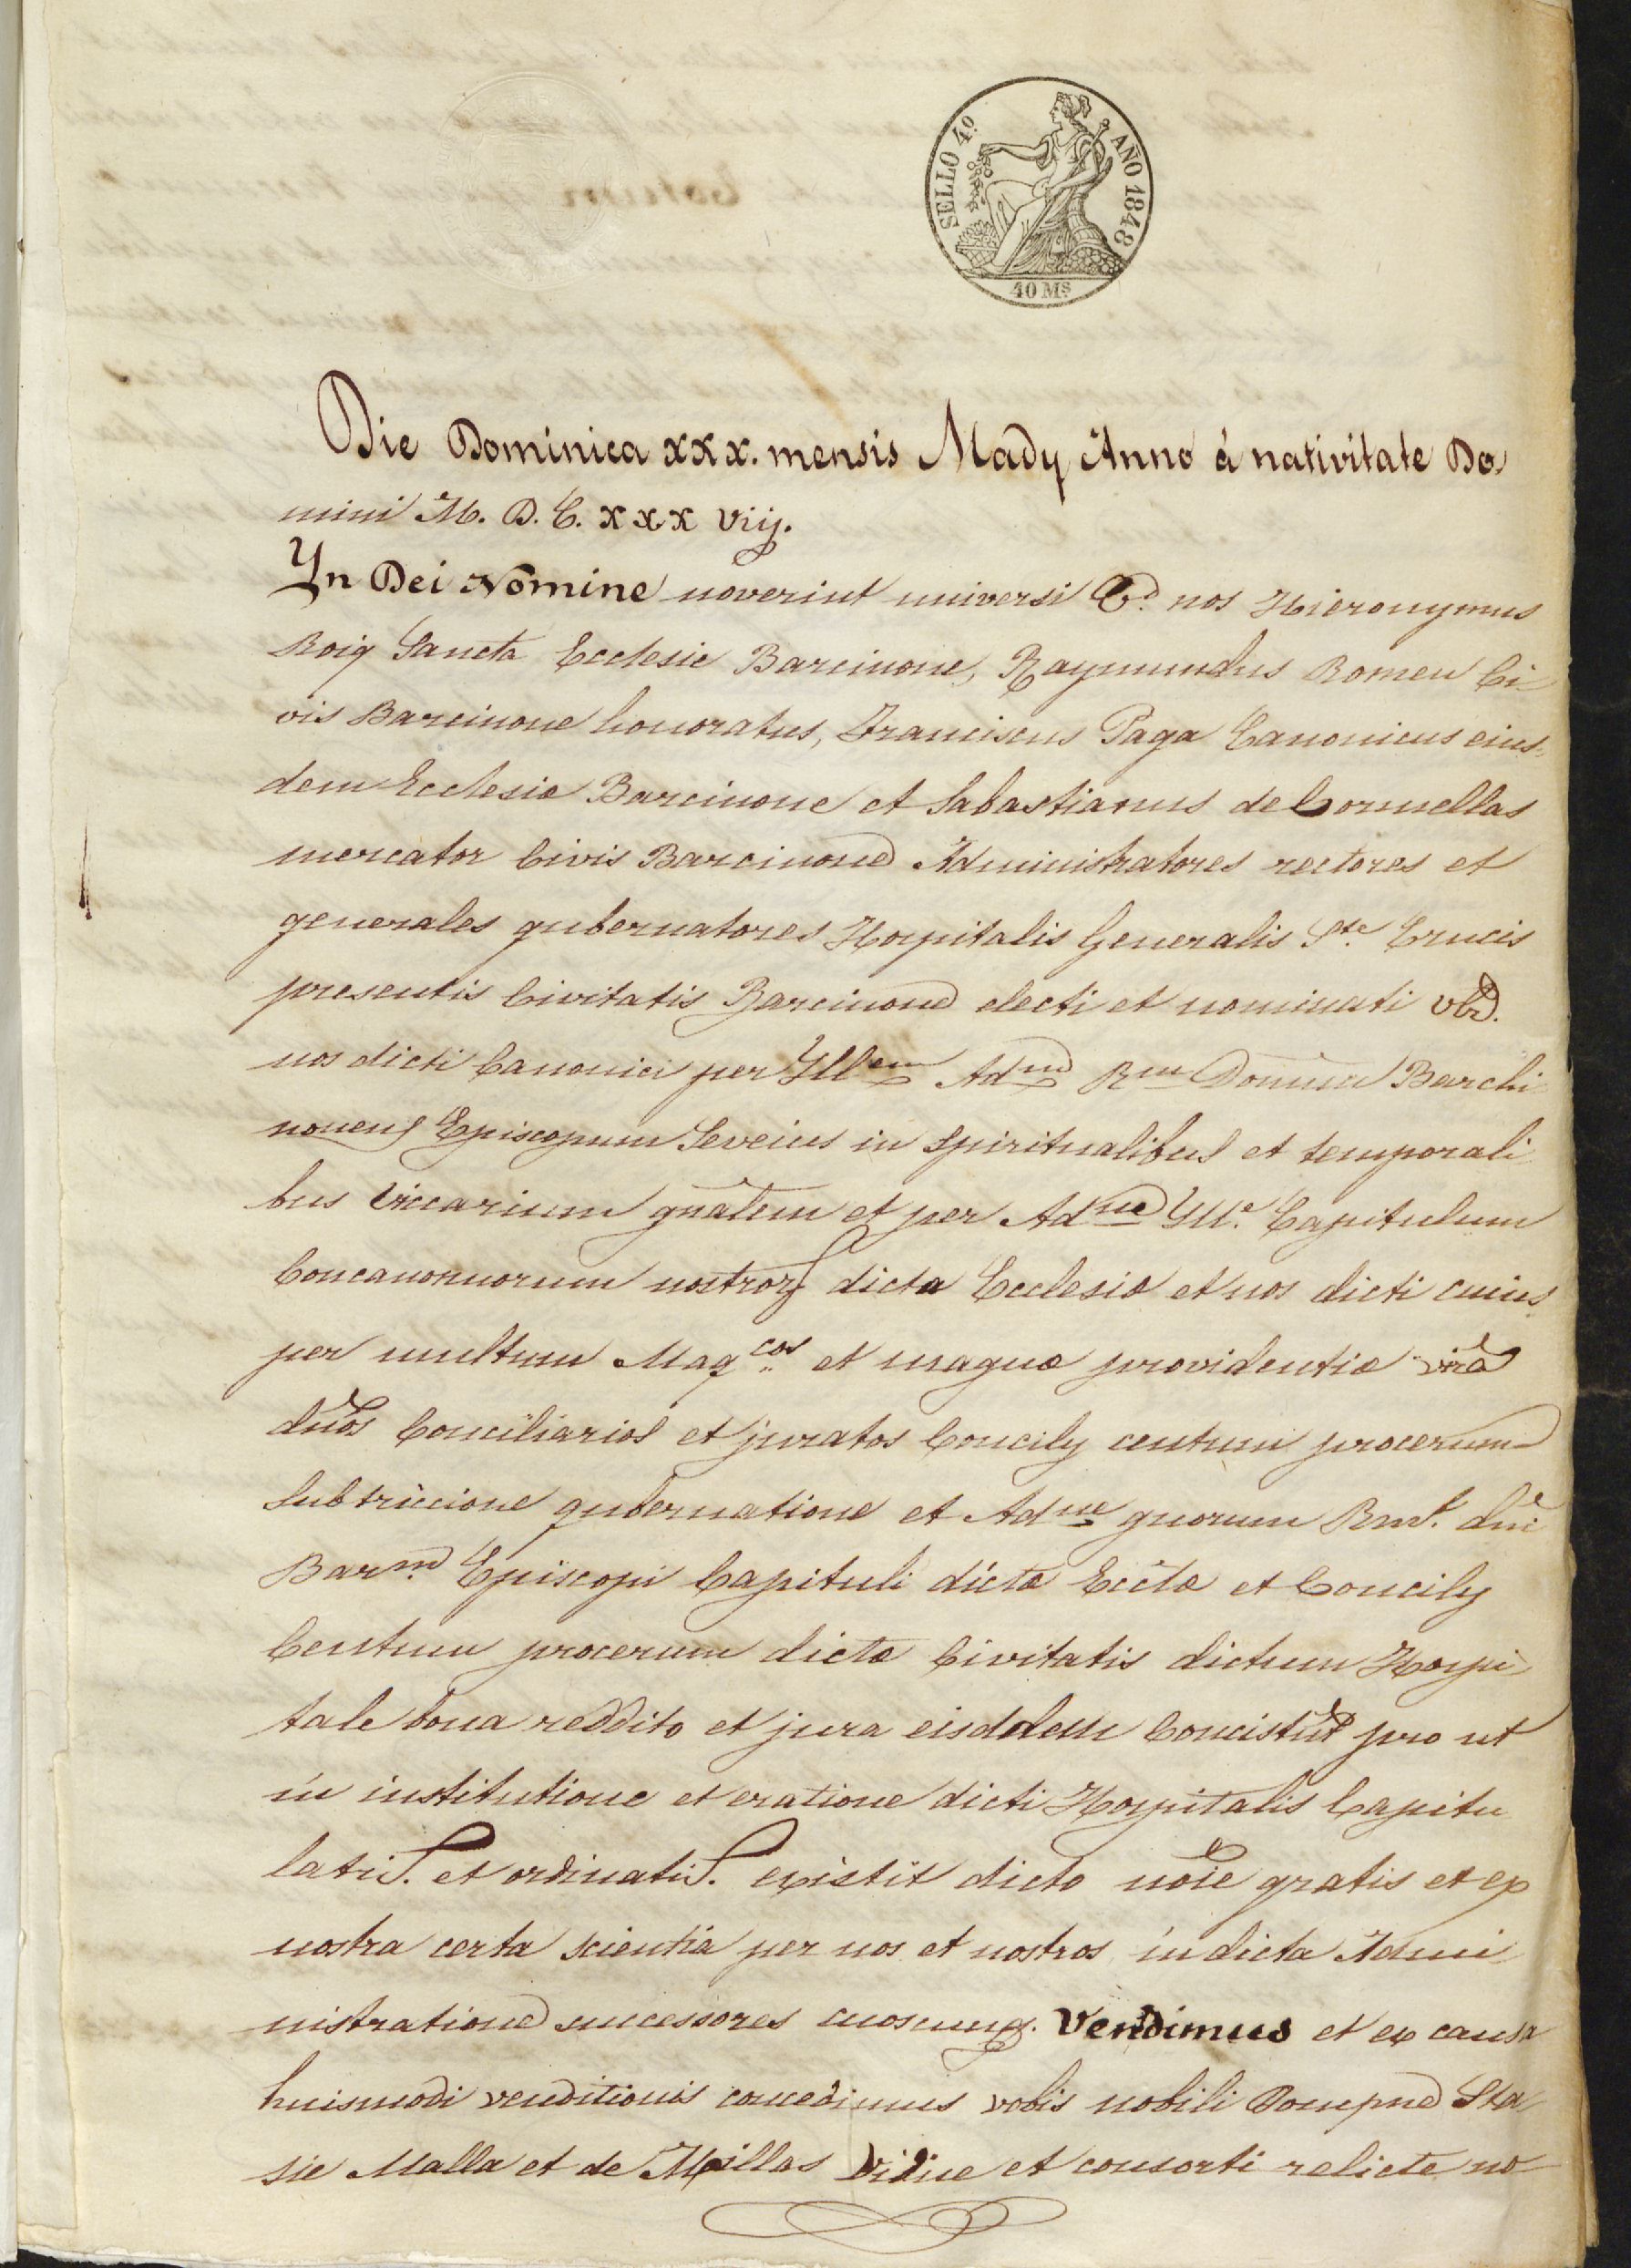 SELLO 4º AÑO 1848
40 Ms
Die Dominica xxx. mensis Mady Anno à nativitate Do
mini M. D. C. xxx viij.
Yn Dei Nomine noverint universi Qd. nos Hieronymus
Roig Sancta Ecclesie Barcinone, Raymundus Romeu Ci
vis Barcinone honoratus, Franciscus Paga Canonicus eius
dem Ecclesia Barcinone et Sabastianus de Cornellas
mercator Civis Barcinone Administratores rectores et
generales gubernatores Hospitalis Generalis Ste. Crucis
presentis Civitatis Barcinone electi et nominati vbz.
nos dicti Canonici per Yllem Adm Rm Dominu Barchi
nonens Episcopum Seveius in spiritualibus et temporali
bus Viccarium gnalem et per Adme Ylle. Capitulum
Concanonnorum nostror dicta Ecclesia et nos dicti cuius
per multum Magcos et magna providentia vira
dnos Conciliarios et juratos Concily centum procerum
Subtriccione gubernatione et Adme quorum Rmi. dni
Barne Episcopi Capituli dicta Eccta et Concily
Centum procerum dicta Civitatis dictum Hospi
tale bona reddito et jura eisddem Concistut pro ut
in institutione et eratione dicti Hospitalis Capitu
latis. et ordinatis. existit dicto noie gratis et ex
nostra certa scientia per nos et nostros in dicta Admi
nistratione successores cuoscunq. Vendimus et ex causa
huismodi venditionis concedimus vobis nobili Dompne Sta
sie Malla et de Millas Vidue et consorti relicte no